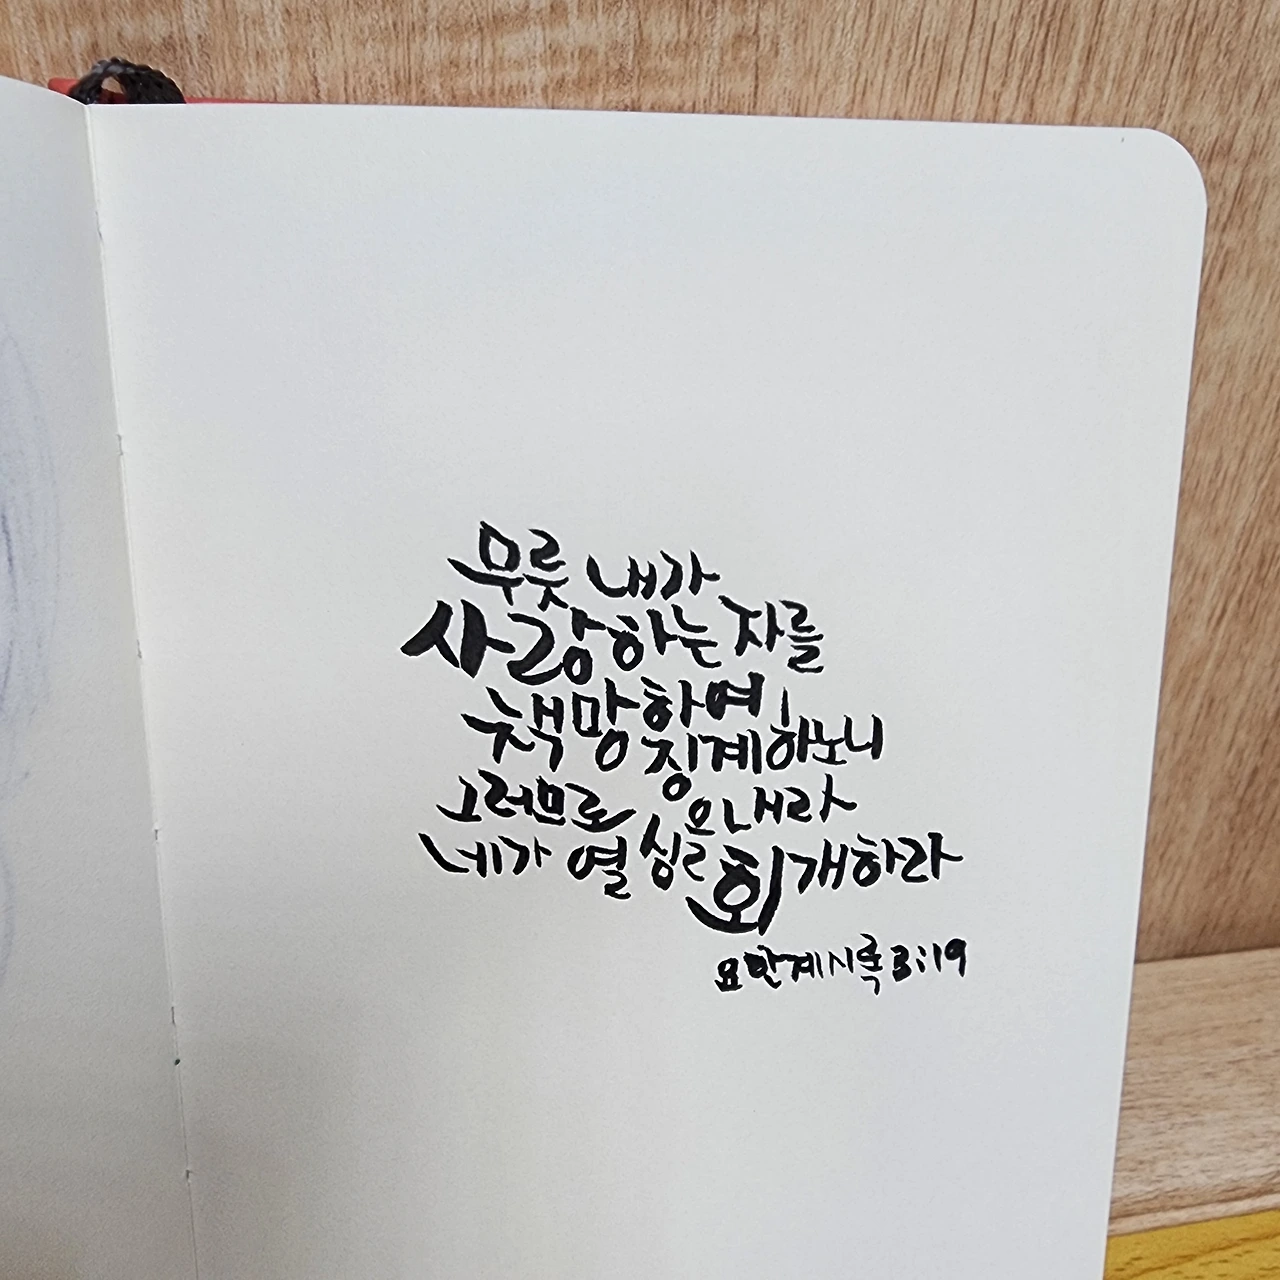 무릇 내가
사랑하는 자를
책망하여 징계하노니
그러므로
네가 열심을 내라 회개하라
요한계시록 3:19